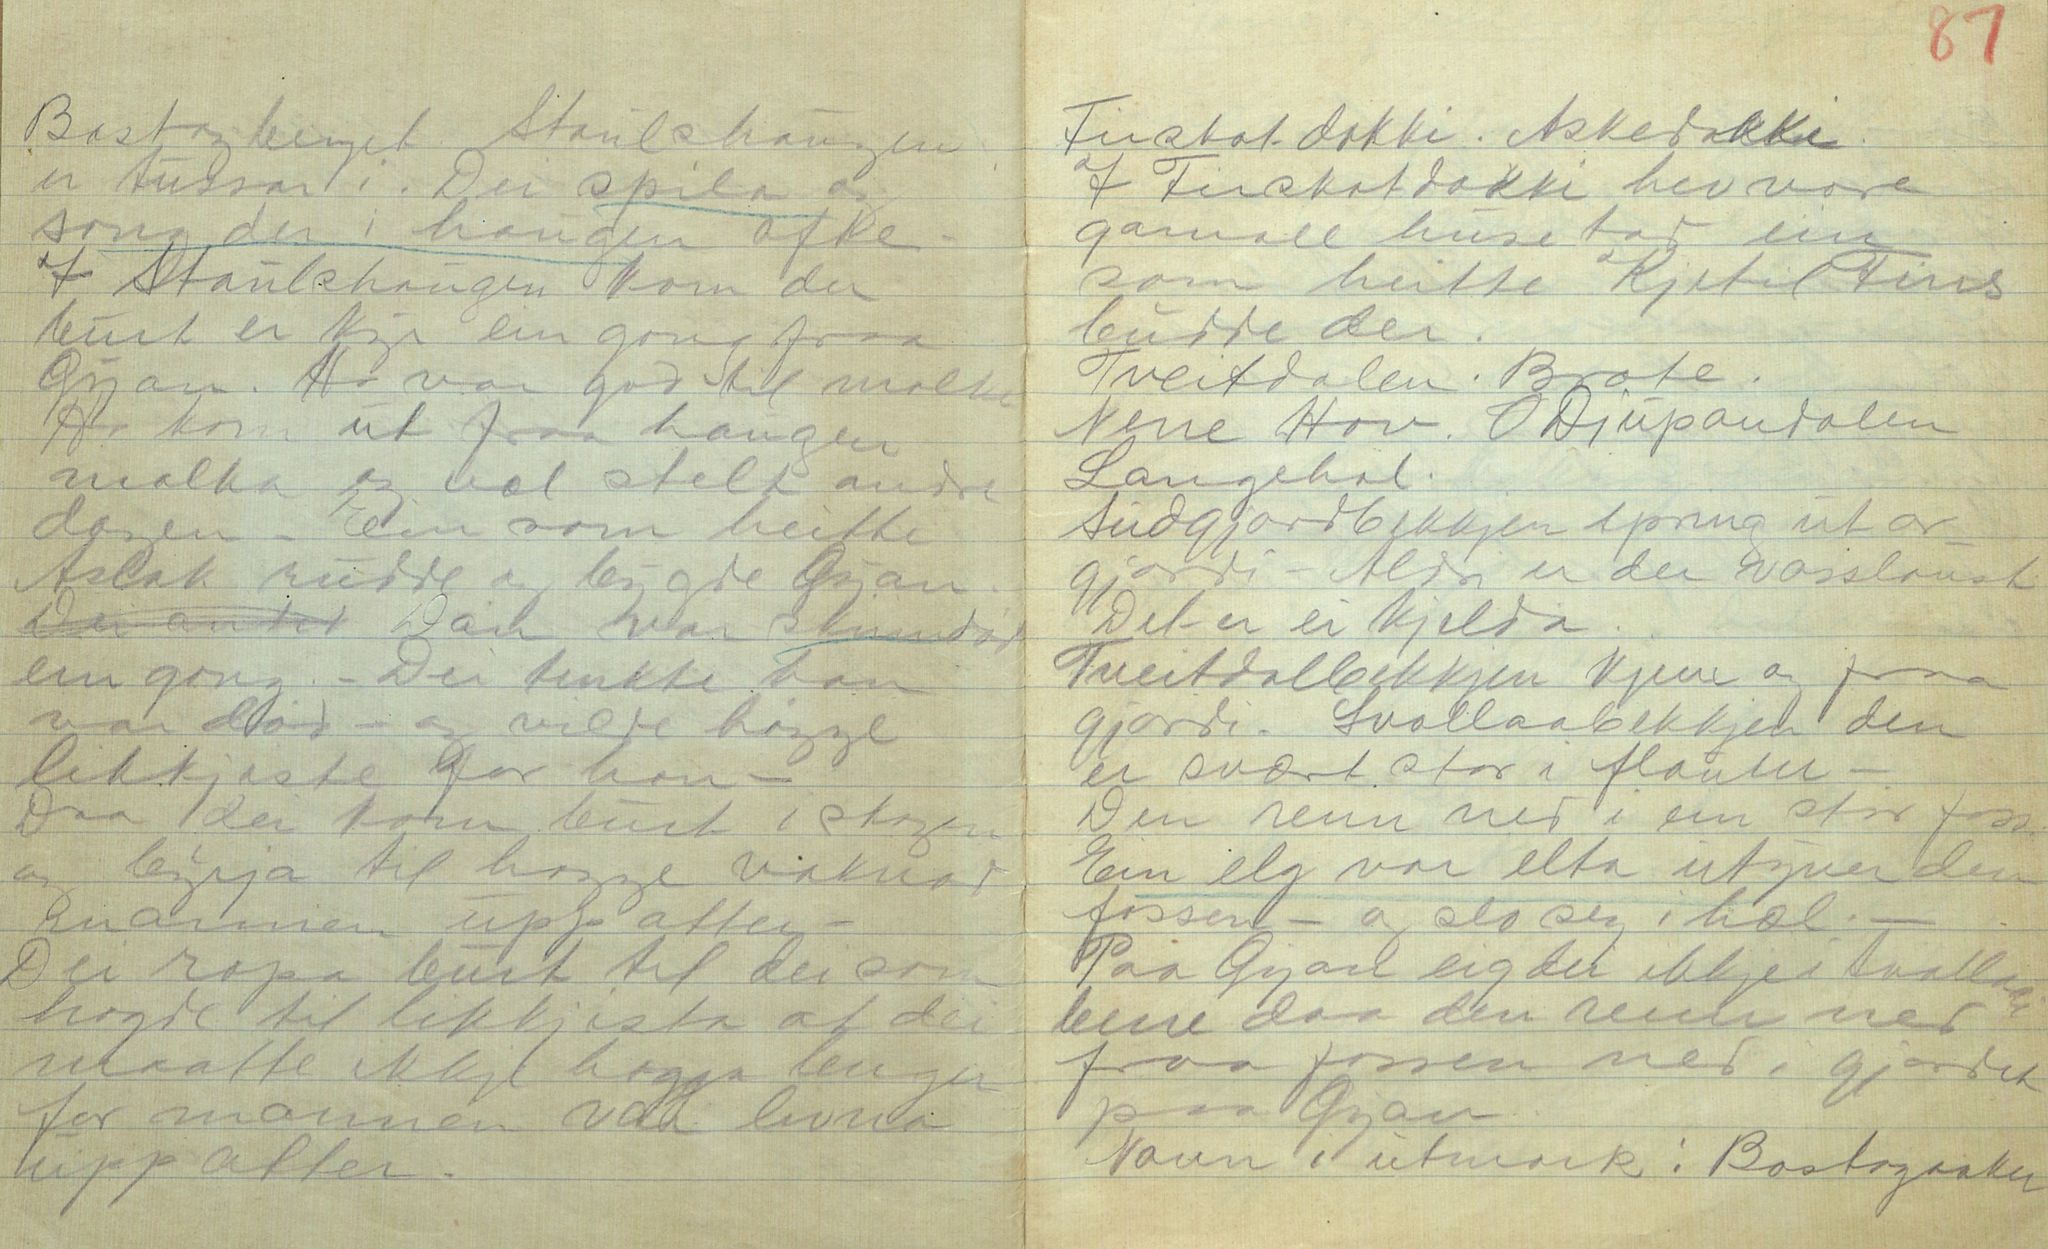 Bostogberget. Staulshaugen
er tussar i. Dei spila og
song der i haugen ofke-
I Staulshaugen kom der
burt ei kyr ein gong fraa
Gyan. Ho var god til molke
Ho kom ut fraa haugen
molka og vel stelt andre
dagen - Ein som heitte
Aslak rudde og bygde Gyan.
Dei Dan var skinndød
ein gong. - Dei tenkte han
var død - og vilde høgge
likkjiste for han -
Daa dei kom burt i skogen
og byrja til hogge vaknad
mannen upp atter -
Dei ropa burt til dei som
hogde til likkjista at dei
maatte ikkje hogga lenger
for mannen var livna
upp atter.
87
Firskot-dokki. Askedokki.
I Firskotdokki hev vore
gamall husetad ein
som heitte Kjetil Firis
budde der.
Tveitdalen. Brote.
Nerre Hov. Djupandalen
Langehol.
Sudgjordbekkjen spring ut or
gjordi - Aldri er der vasslaust
Det er ei kjelda.
Tveitdalbekkjen kjem og fraa
gjordi. Svollaabekkjen den
er svært stor i flauter -
Den renn ned i ein stor foss.
Ein elg var elta utyver den
fossen - og slo seg i hæl. -
Paa Gyan eig dei ikkje i Svollaa
berre daa den renn ned
fraa fossen ned i gjordet
paa Gyan
Navn i utmark: Bostogaaker